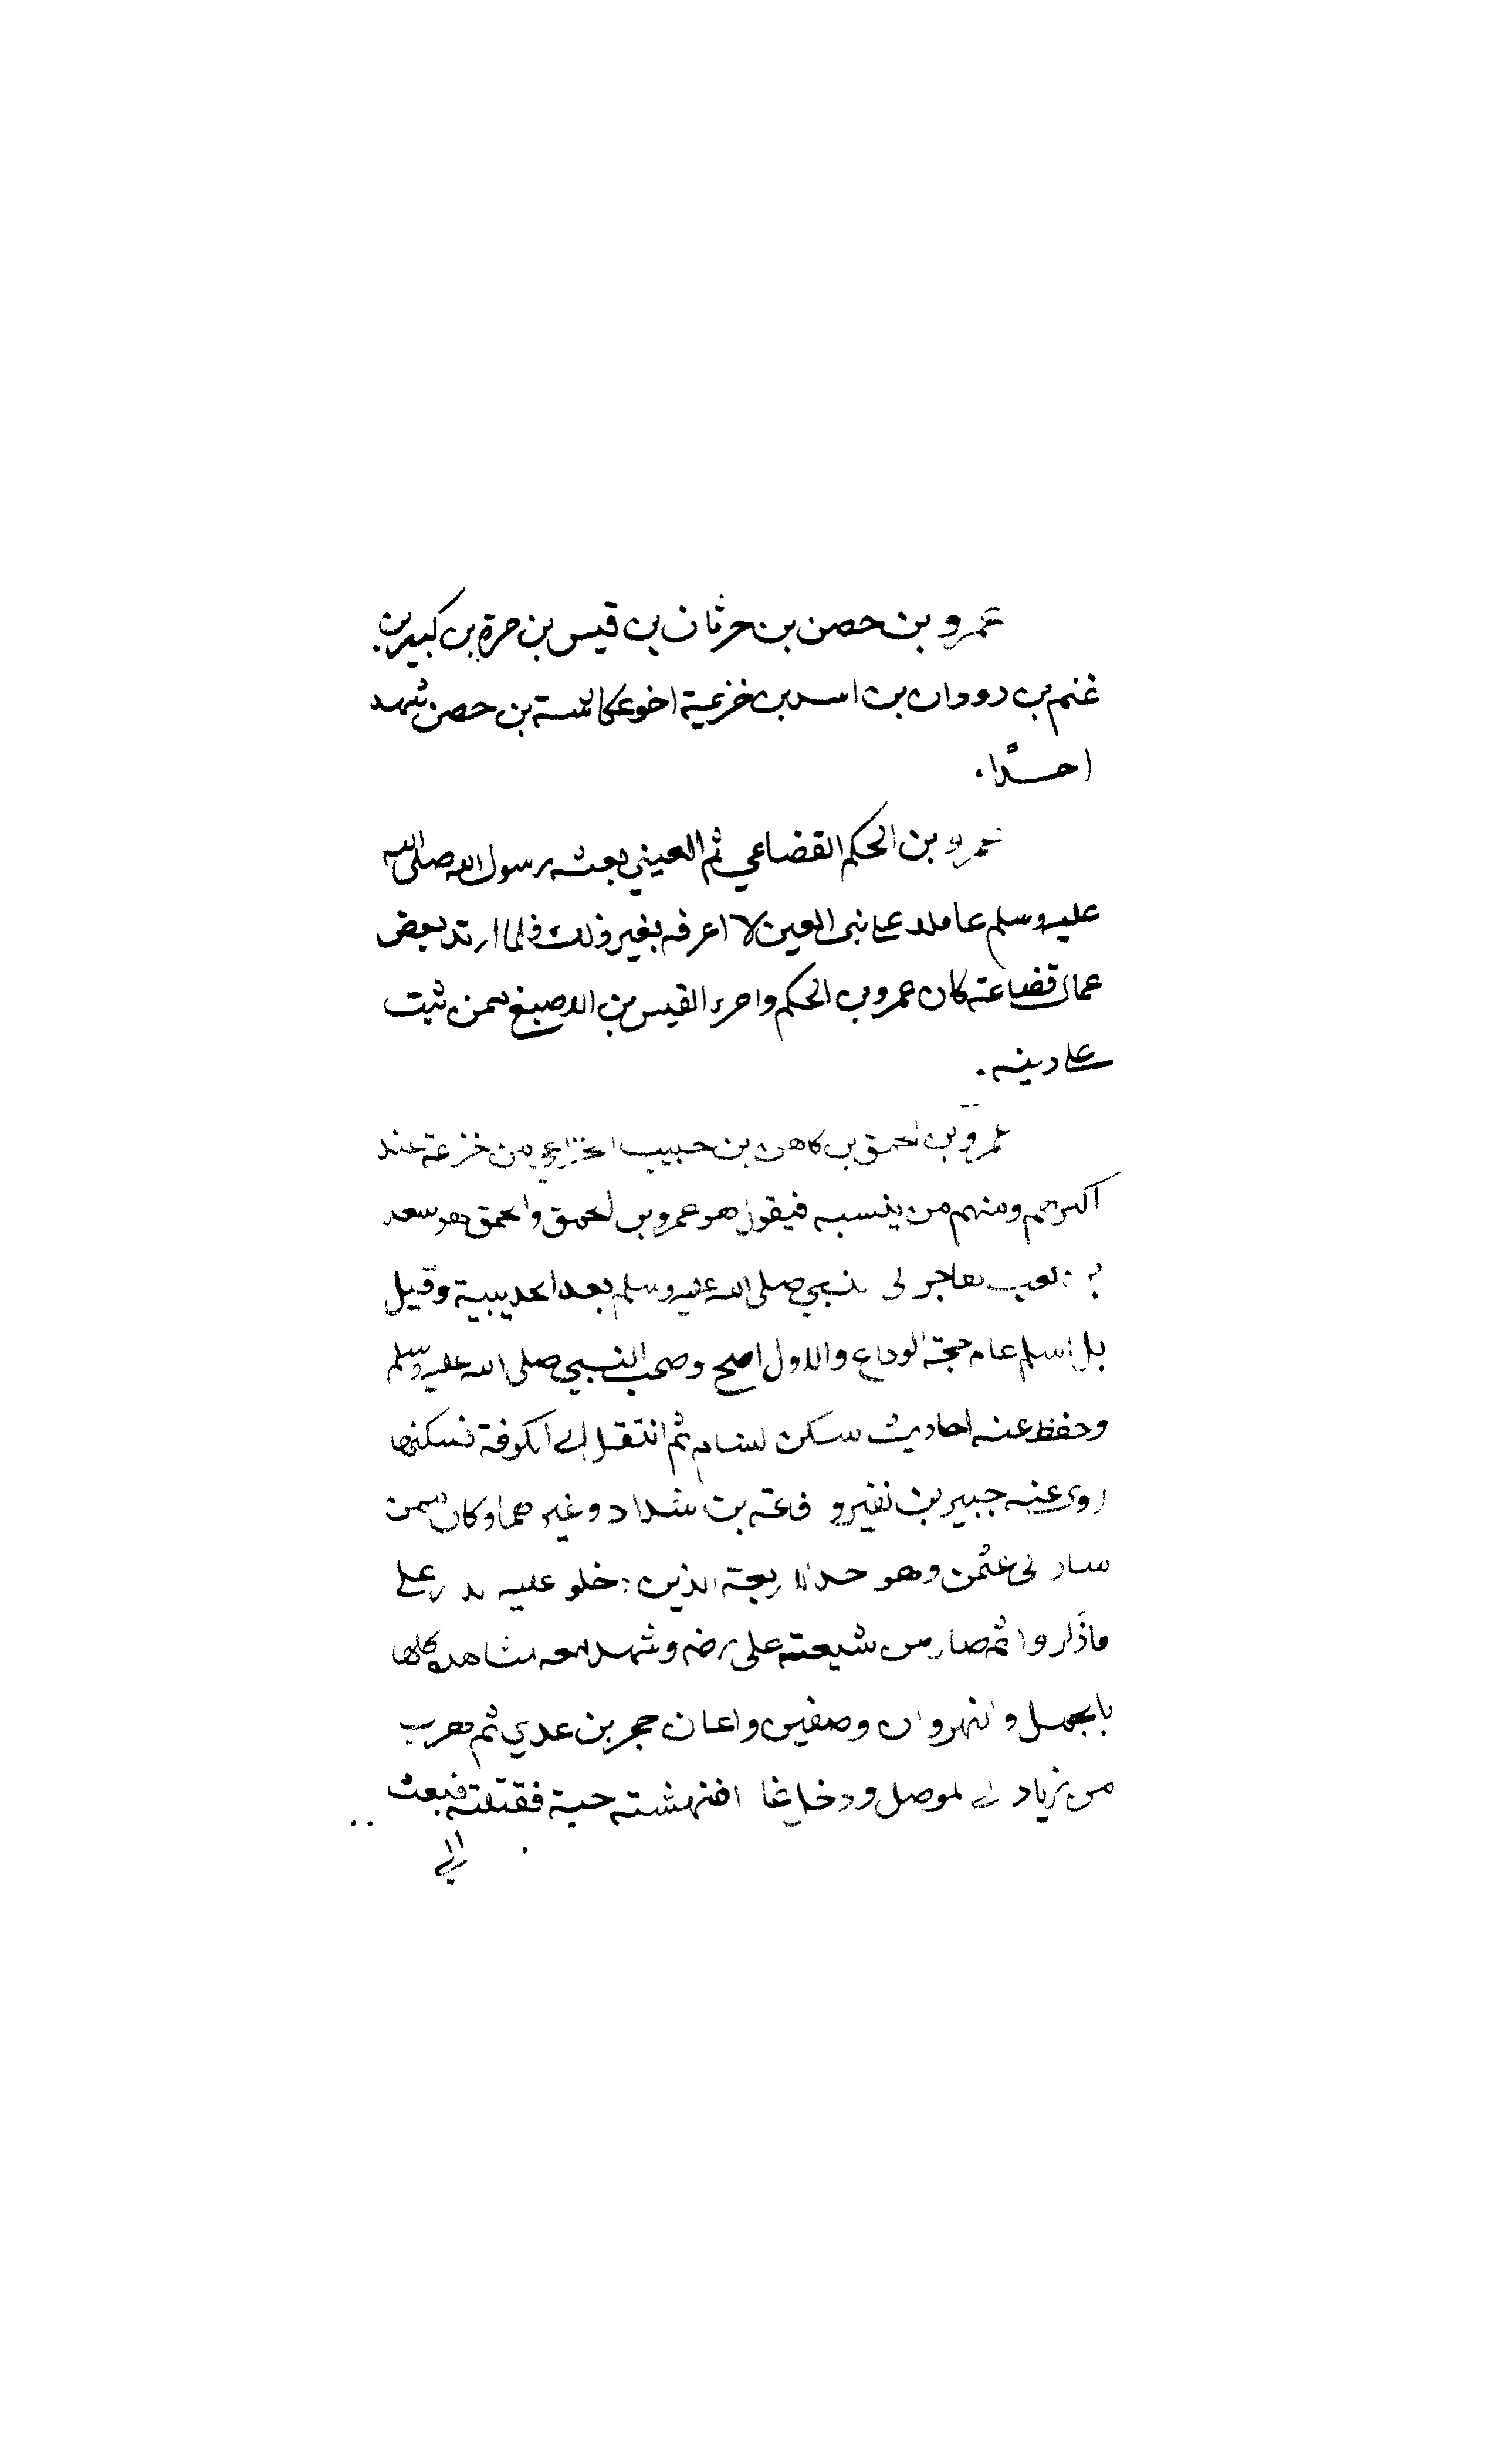 عمرو بن حصن بن حرثان بن قيس بن مرة بن كبير بن
غنم بن دودان بن اسد بن خزيمة اخو عكاشة بن حصن شهد
احدًا.
عمرو بن الحكم القضاعي ثم العيني بعثه رسول الله صلى الله
عليه وسلم عاملا على بنى العين لا اعرفه بغير ذلك فلما ارتد بعض
عمال قضاعة كان عمرو بن الحكم وامرء القيس بن الاصبغ ممن ثبت
على دينه.
عمرو بن الحمق بن كاهن بن حبيب الخزاعي من خزعة عند
اكثرهم ومنهم من ينسبه فيقول هو عمرو بن الحمق والحمق هو سعد
بن كعب هاجر الى النبي صلى الله عليه وسلم بعد الحديبية وقيل
بل اسلم عام حجة الوداع والاول اصح وصحب النبي صلى الله عليه وسلم
وحفظ عنه احاديث سكن الشام ثم انتقل الى الكوفة فسكنها
روى عنه جبير بن نفير و رفاعة بن شداد وغيرهما وكان ممن
سار الى عثمن وهو احد الاربعة الذين دخلوا عليه الدار على
ماذكروا ثم صار من شيعة على رضه وشهد معه مشاهده كلها
بالجمل والنهروان وصفين واعان حجر بن عدي ثم هرب
من زياد الى الموصل ودخل غارا فنهشته حية فقتلته فبعث
الى